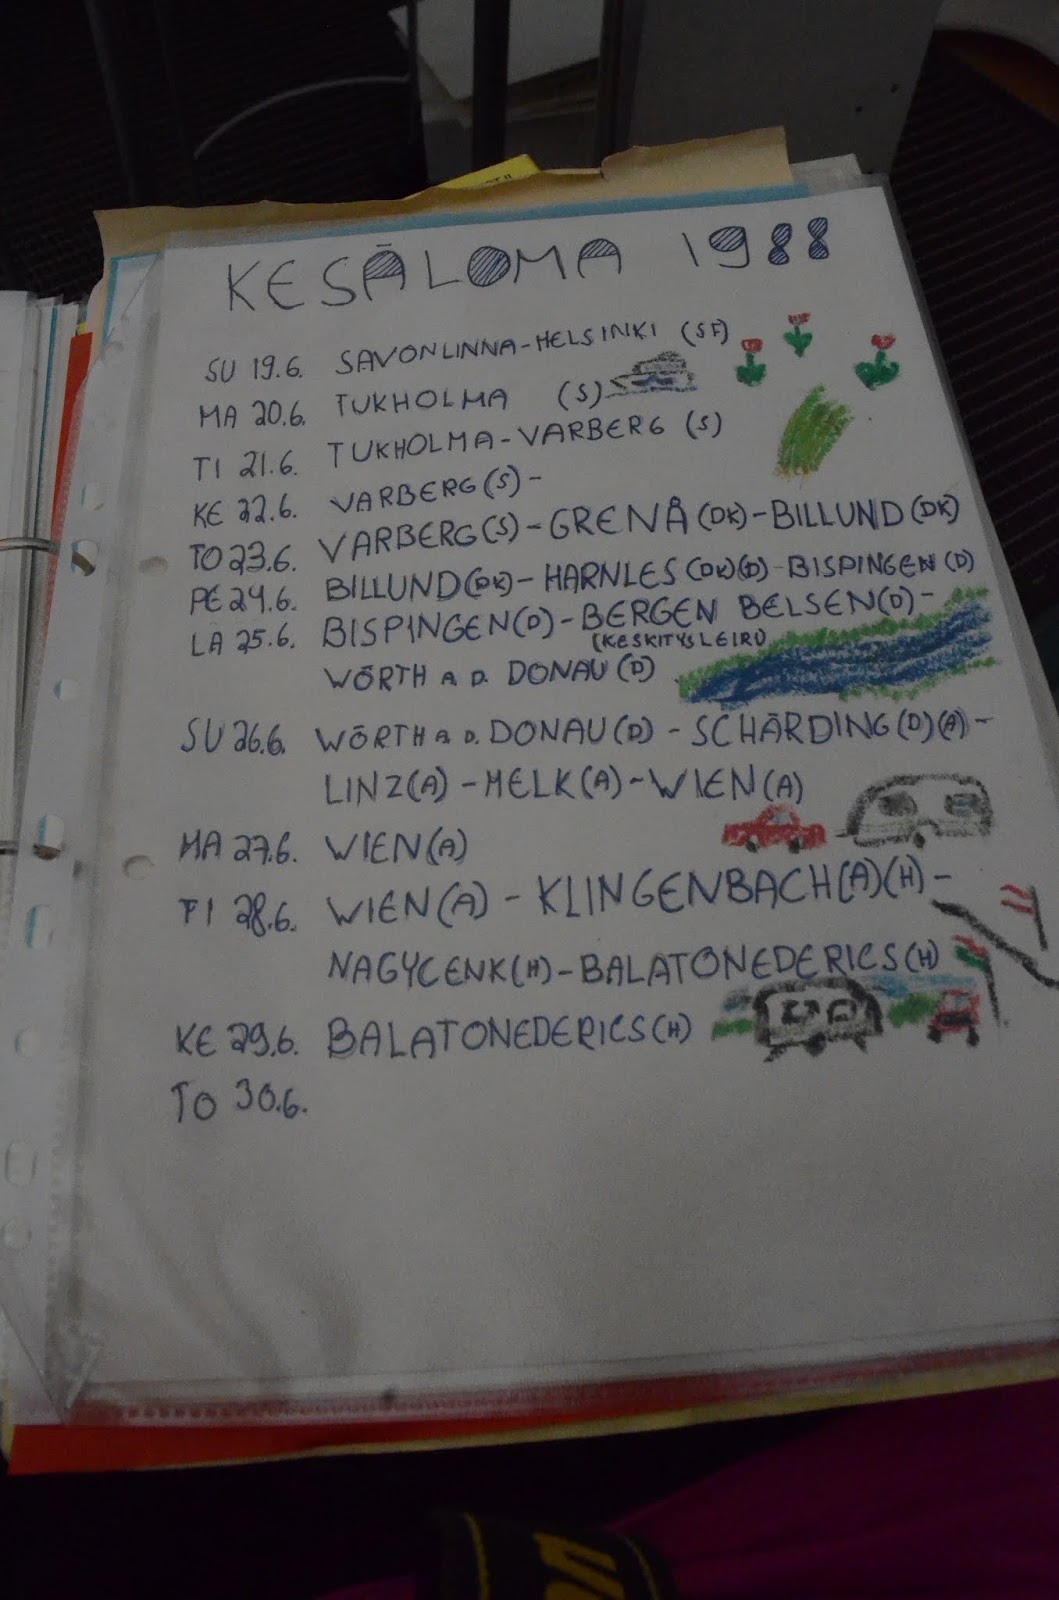 KESÄLOMA 1988
SU 19.6. SAVONLINNA-HELSINKI (SF)
MA 20.6. TUKHOLMA (S)
TI 21.6. TUKHOLMA-VARBERG (S)
KE 22.6. VARBERG(S)-
TO 23.6. VARBERG(S)-GRENÅ(DK)-BILLUND(DK)
PE 24.6. BILLUND(DK)-HARNLES(DK)(D)-BISPINGEN(D)
LA 25.6. BISPINGEN(D)-BERGEN BELSEN(D)-
(KESKITYSLEIRI)
WÖRTH A. D. DONAU(D)
SU 26.6. WÖRTH A D. DONAU(D)-SCHÄRDING(D)(A)-
LINZ(A)-MELK(A)-WIEN(A)
MA 27.6. WIEN(A)
TI 28.6. WIEN(A)-KLINGENBACH(A)(H)-
NAGYCENK(H)-BALATONEDERICS(H)
KE 29.6. BALATONEDERICS(H)
TO 30.6.